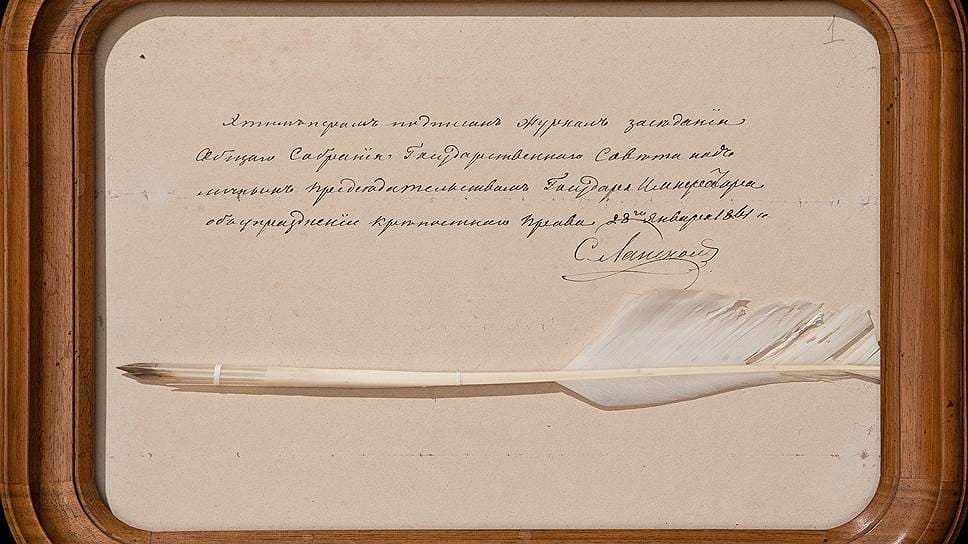 1
Этимъ перомъ подписанъ журналъ засѣданія
Общаго Собранія Государственнаго Совѣта подъ
личнымъ предсѣдательствомъ Государя Императора
объ упраздненіи крѣпостнаго права 28го Января 1861 г.
С. Ланской